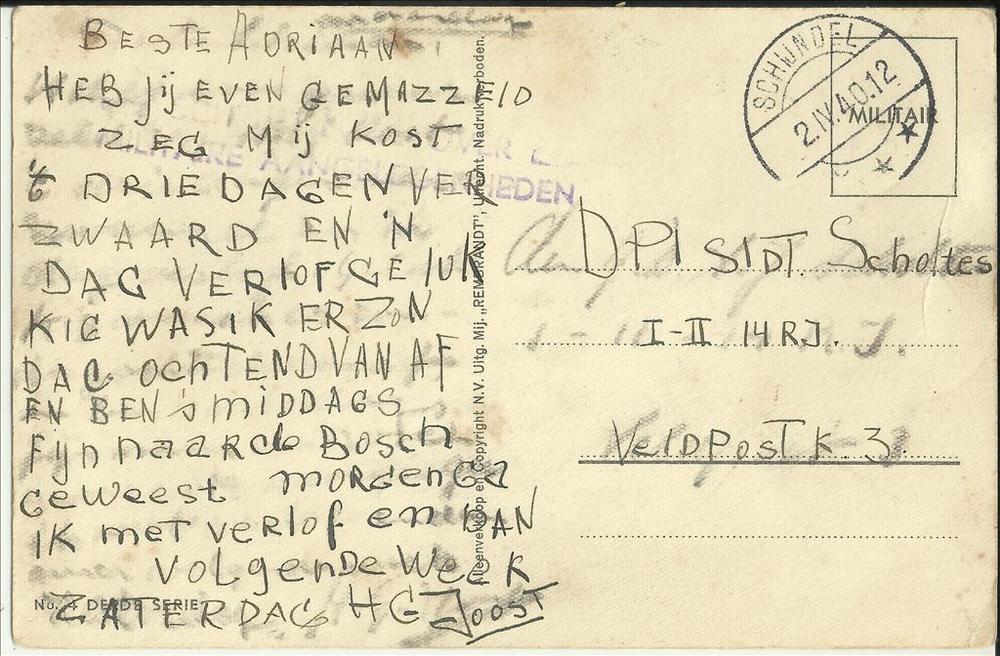 BESTE ADRIAAN
HEB jij EVEN GEMAZZELD
ZEG Mij KOST
't DRIE DAGEN VER
ZWAARD EN 'N
DAG VERLOF GELUK
KIG WAS IK ER ZON
DAG OchTEND VAN AF
EN BEN 's MIDDAGS
Fijn naar de Bosch
geweest morgen ga
IK met verlof en DAN
VOLgende Week
ZATERDAG HG JOOST
No. 4 DERDE SERIE
Alleenverkoop en Copyright N.V. Uitg. Mij. „REMBRANDT", Utrecht. Nadruk verboden.
MILITAIRE AANGELEGENHEDEN
SCHIJNDEL
2.IV.40.12
MILITAIR
DPl SLDT Scholtes
I-II 14 RJ.
VeldPost K. 3.